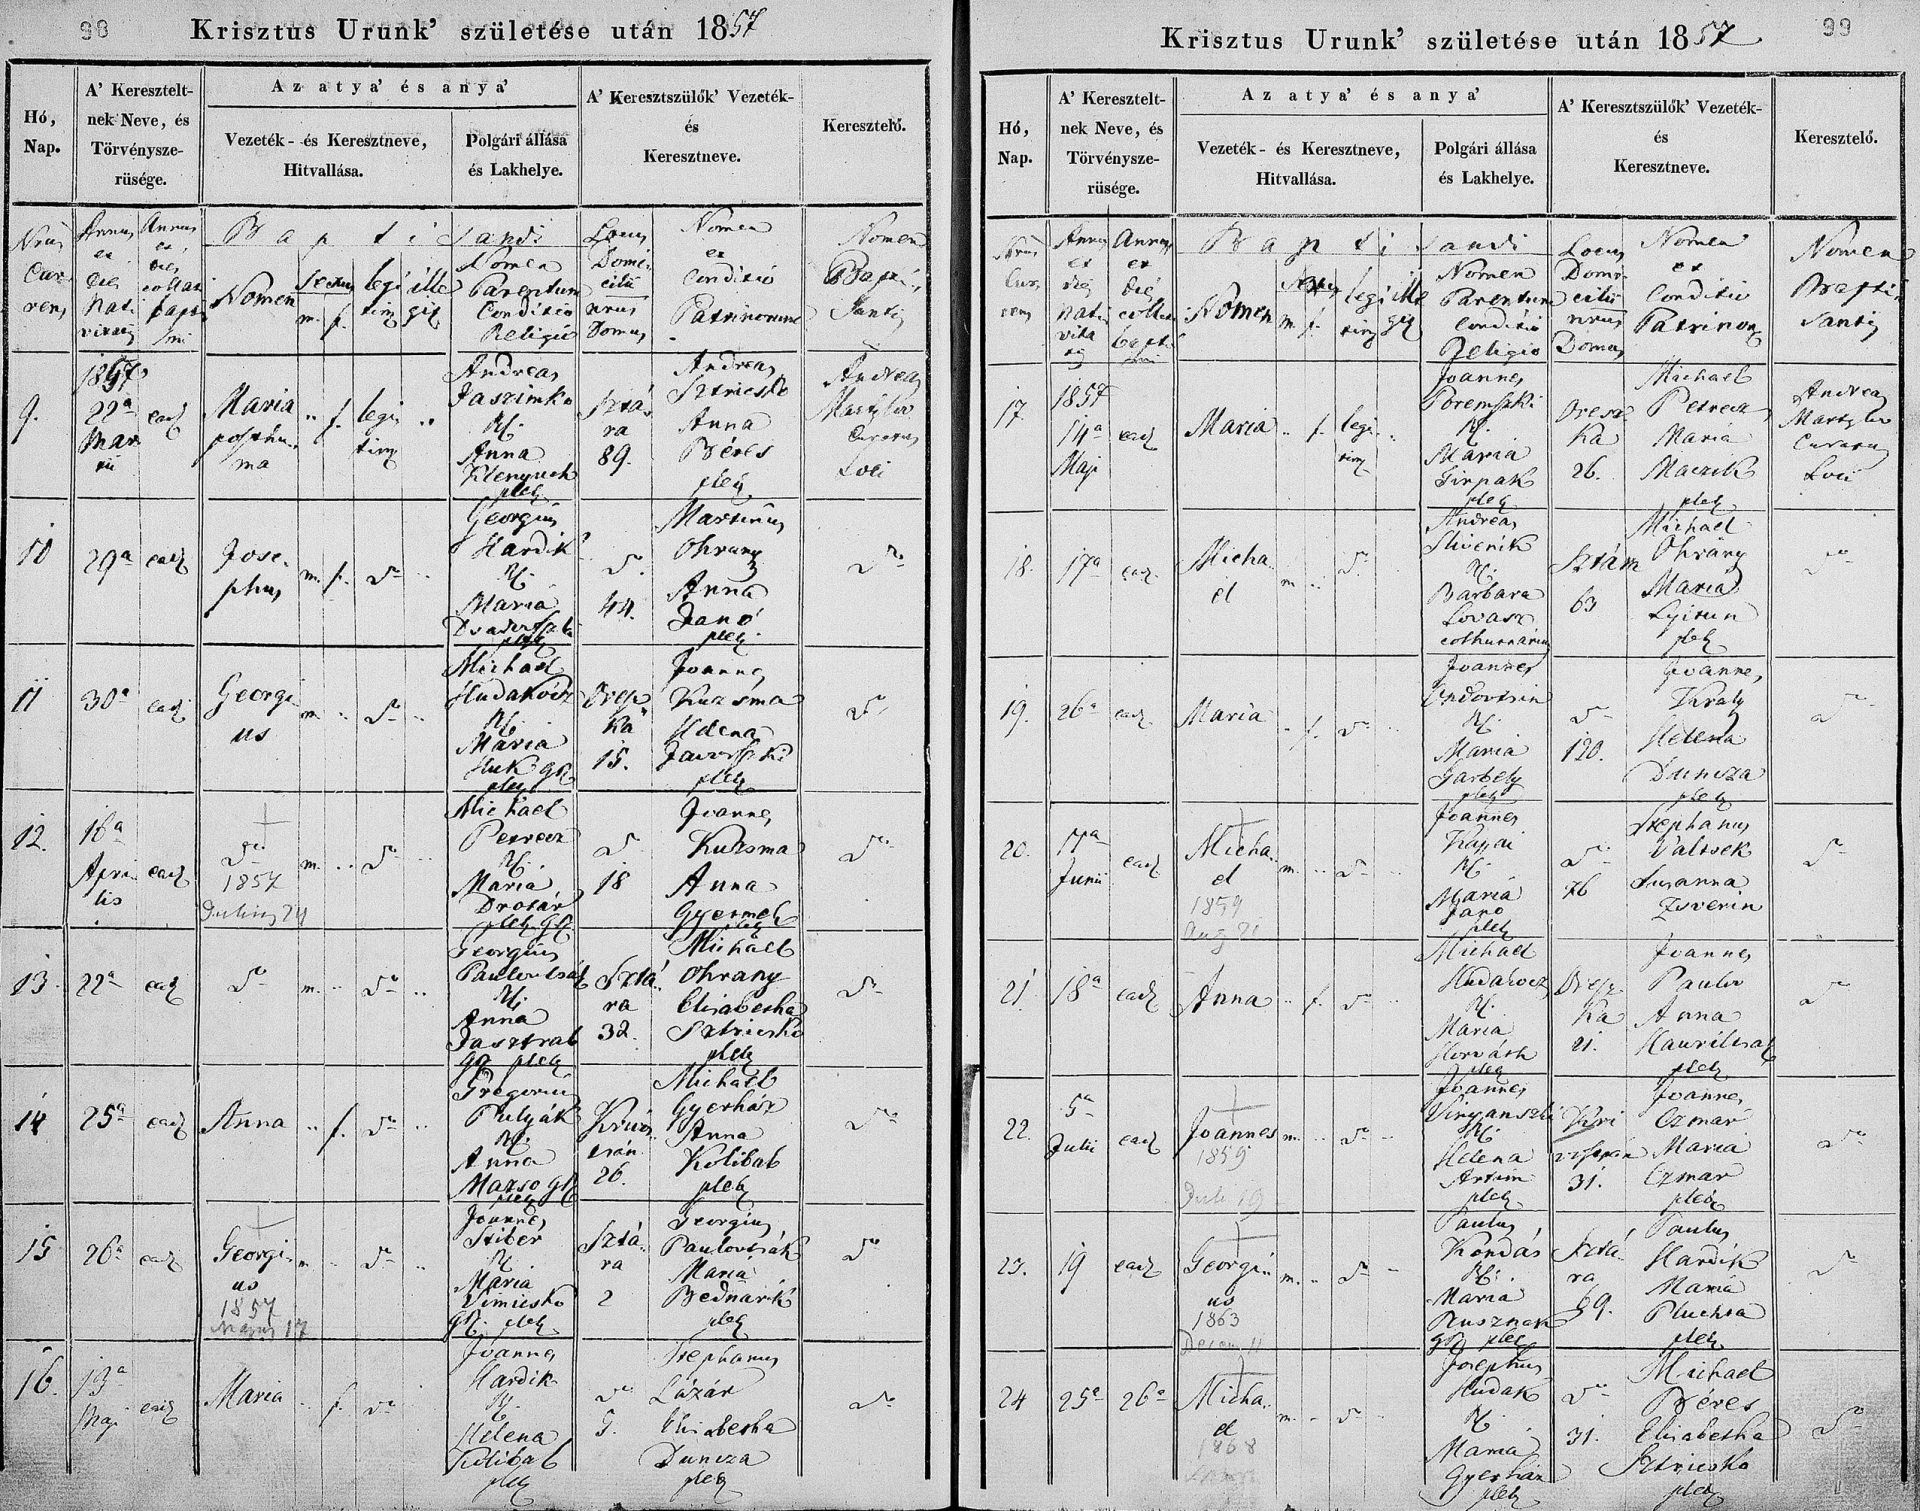 98
Krisztus Urunk' születése után 1857
Hó,
Nap.
A' Keresztelt-
nek Neve, és
Törvénysze-
rüsége.
Az atya' és anya'
Vezeték- és Keresztneve,
Hitvallása.
Polgári állása
és Lakhelye.
A' Keresztszülők' Vezeték-
és
Keresztneve.
Keresztelő.
Nrus
Cur
rens
Annus
et
dies
nati
vitatis
Annus
et
dies
collati
bapti
smi
Baptisandi
Nomen
Sexus
m. f.
legi
tim
ille
git
Nomen
Parentum
Conditio
Religio
Locus
Domi-
cilii
nrus
Domus
Nomen
et
Conditio
Patrinorum
Nomen
Bapti
santis
9.
1857
22a
Mar
tii
ead
Maria
posthu-
ma
f.
legi
tim
Andreas
Jaszimko
Anna
Klenyuch
pleb
Sztá
ra
89.
Andreas
Sztricsko
Anna
Béres
pleb
Andreas
Curatus
Loci
10
29a
ead
Jose-
phus
m. f. do
Georgius
Hardik
Maria
pleb
do
44.
Martinus
Ohrany
Anna
Janó
pleb.
do
11
30a
ead
Georgi
us
m. do
Michael
Hudakócz
Maria
Huk gr
pleb
Oresz
ka
15.
Joannes
Kuzsma
Helena
pleb
do
12.
18a
Apri
lis
ead
do
1857
Julius 24
m. do
Michael
Petrecz
Maria
Drotár
pleb gr.
do
18
Joannes
Kuzsma
Anna
Gyermek
pleb
do
13.
22a
ead
do
m. do
Georgius
Paulovcsák
Anna
Jasztrab
gr pleb
Sztá
ra
32.
Michael
Ohrany
Elisabetha
Sztricsko
pleb
do
14
25a
ead
Anna
f. do
Gregorius
Pulyák
Anna
Mazso gr
pleb
26.
Michael
Gyerház
Anna
Kolibab
pleb
do
15
26a
ead
Georgi
us
1857
Majus 17
m do
Joannes
Stiber
Maria
Vimicsko
gr. pleb
Sztá-
ra
2
Georgius
Paulovcsák
Maria
Bednarik
pleb
do
16.
13a
Maji
ead
Maria
f. do
Joannes
Hardik
Helena
Kolibab
pleb
do
5.
Stephanus
Lázár
Elisabetha
Duncza
pleb
do
99
Krisztus Urunk' születése után 1857
Hó,
Nap.
A' Keresztelt-
nek Neve, és
Törvénysze-
rüsége.
Az atya' és anya'
Vezeték- és Keresztneve,
Hitvallása.
Polgári állása
és Lakhelye.
A' Keresztszülők' Vezeték-
és
Keresztneve.
Keresztelő.
Nrus
Cur
rens
Annus
et
dies
nati
vita
tis
Annus
et
die
collati
bapti
smi
Baptisandi
Nomen
Sexus
m. f.
legi
tim
ille
git
Nomen
Parentum
Conditio
Religio
Locus
Domi
cilii
nrus
Domus
Nomen
et
Conditio
Patrinor
Nomen
Bapti
santis
17
1857
14a
Maji
ead
Maria
f.
legi
tim
Joannes
Poremszki
Maria
Girpak
pleb
Oresz
ka
26.
Michael
Petrecz
Maria
Maczik
pleb
Andreas
Curatus
Loci
18.
17a
ead.
Micha
el
m. do
Andreas
Slivenik
Barbara
Lovasz
cothurnarius
Sztára
63
Michael
Ohrány
Maria
pleb
do
19.
26a
ead.
Maria
f. do
Joannes
Ondovcsin
Maria
Garbely
pleb
do
120.
Joannes
Király
Helena
Duncza
pleb
do
20.
17a
Junii
ead
Micha
el
1859
Aug 21
m. do
Joannes
Maria
Jano
pleb
do
76
Stephanus
Valtsek
Susanna
Zsverin
do
21
18a
ead
Anna
f. do
Michael
Hudakocz
Maria
Horváth
pleb
Oresz
ka
21.
Joannes
Paulo
Anna
pleb
do
22.
5a
Julii
ead
Joannes
1859
Juli 19
m. do
Joannes
Vinyanszki
Helena
Artim
pleb
31.
Joannes
Czmar
Maria
Czmar
pleb
do
23.
19
ead
Georgi
us
1863
Decem 11
m. do
Paulus
Kondás
Maria
Rusznak
gr pleb
Sztá
ra
69.
Paulus
Hardik
Maria
Pluchta
pleb
do
24
25a
26a
Micha
el
1868
m. do
Josephus
Hudak
Maria
Gyerház
pleb
do
31.
Michael
Béres
Elisabetha
Sztricsko
pleb
do